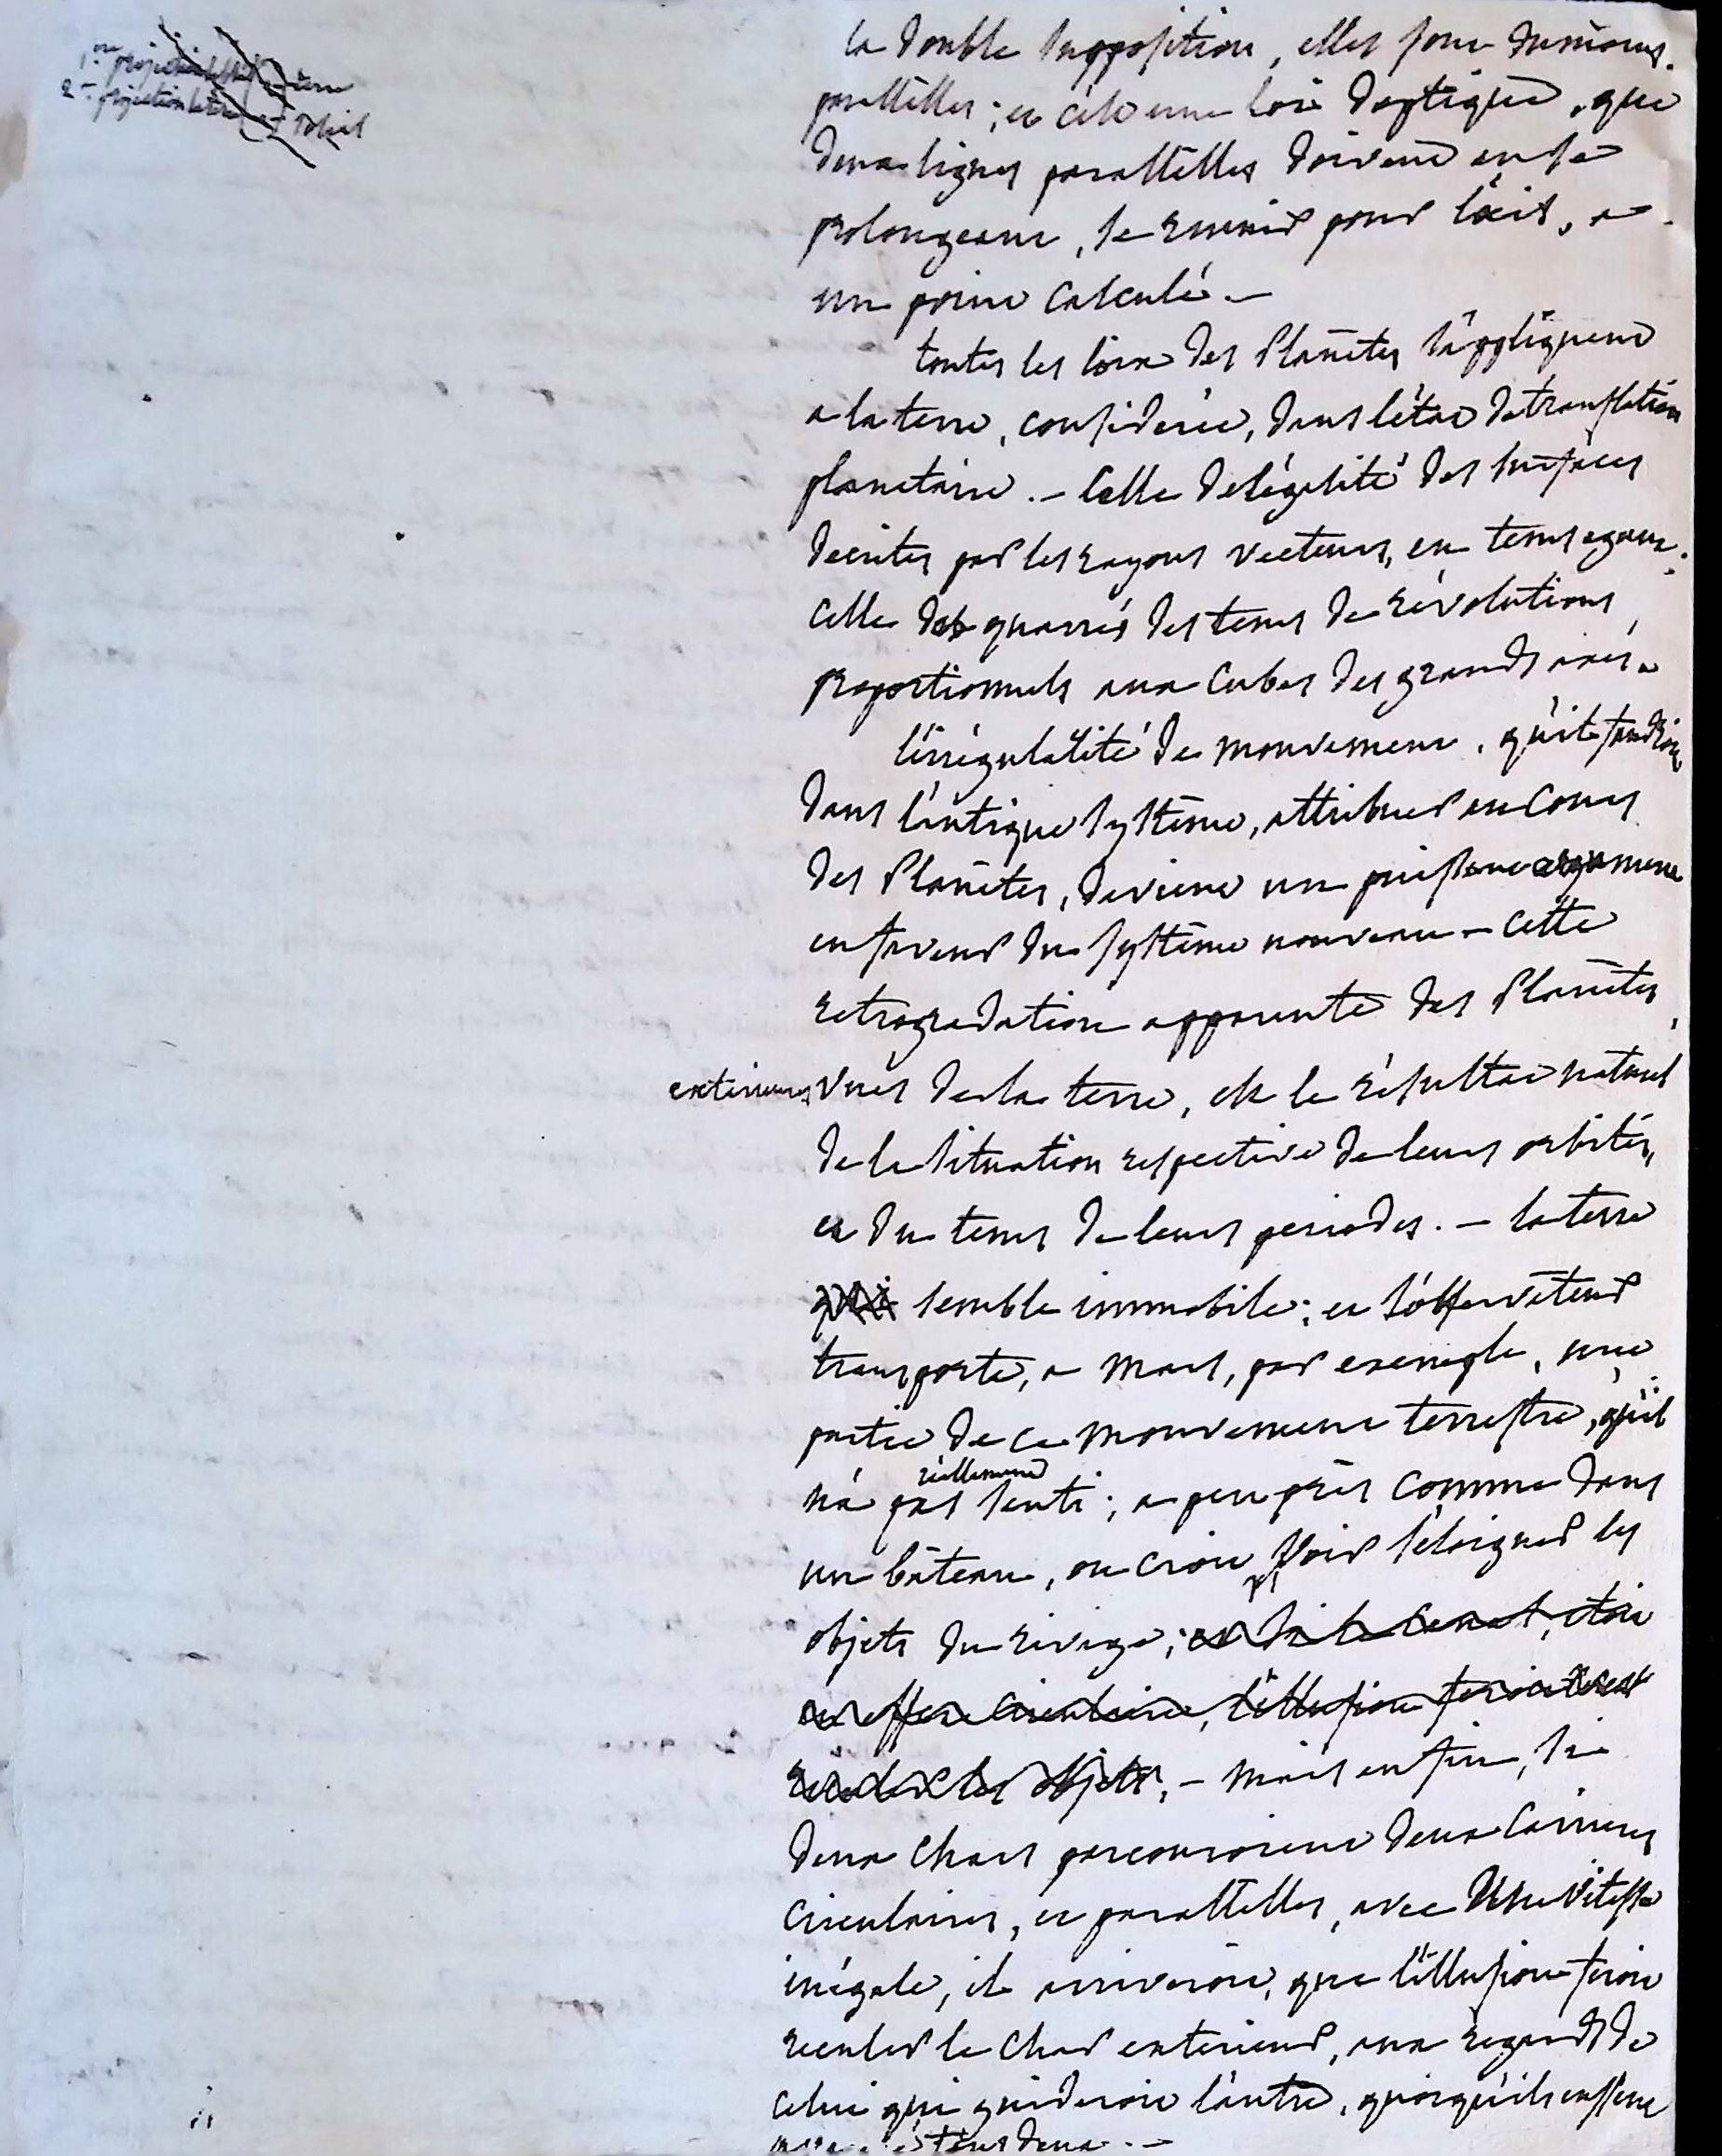 1re projection terre
2e projection soleil
la double supposition, elles sont du moins
paralleles; et c'est une loi d'optique, que
deux lignes paralleles doivent en se
prolongeant, se reunir pour l'œil, a
un point calculé. —
toutes les loix des Planètes s'appliquent
a la terre, considerée, dans l'état de translation
planetaire. — Celle de l'égalité des surfaces
decrites par les rayons vecteurs, en tems egaux;
celle des quarrés des tems de révolutions,
proportionnels aux cubes des grands axes.
l'irrégularité de mouvement, qu'il faudroit
dans l'antique système, attribuer au cours
des Planètes, devient un puissant argument
en faveur du système nouveau — cette
retrogradation apparente des Planètes,
exterieures vues de la terre, est le résultat naturel
de la situation respective de leurs orbites,
et du tems de leurs periodes. — la terre
qui semble immobile; et l'observateur
transporte, a Mars, par exemple, une
partie de ce mouvement terrestre, qu'il
n'a pas réellement senti; a peu près comme dans
un bâteau, on croit voir s'éloigner les
objets du rivage; et si le canal, étoit
en effet circulaire, l'illusion feroit
reculer les objets, — mais enfin, si
deux chars parcouroient deux carrieres
circulaires, et paralleles, avec une vitesse
inégale, il arriveroit, que l'illusion feroit
reculer le char exterieur, aux regards de
celui qui guideroit l'autre, quoiqu'ils eussent
tous deux. —